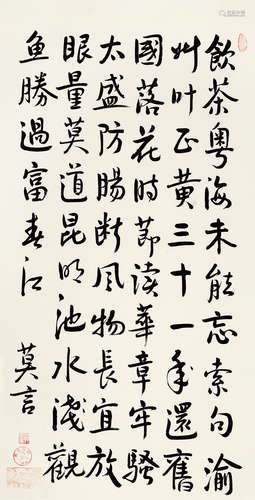 飲茶粤海未能忘索句渝
州叶正黄三十一年還舊
國落花時節读華章牢騷
太盛防腸断风物長宜放
眼量莫道昆明池水淺觀
鱼勝過富春江
莫言